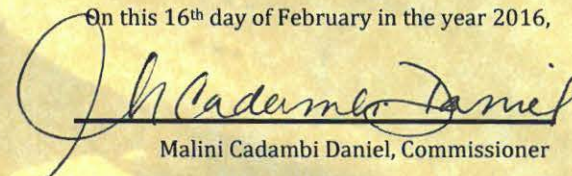 On this 16th day of February in the year 2016,
M Cadambi Daniel
Malini Cadambi Daniel, Commissioner